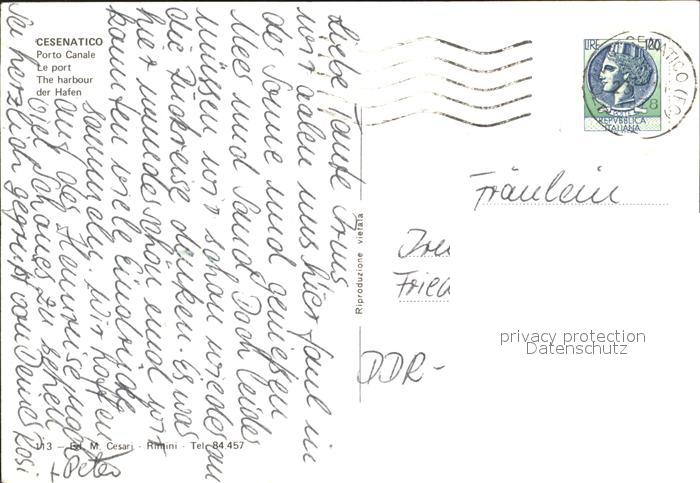 CESENATICO
Porto Canale
Le port
The harbour
der Hafen
Liebe Tante Irms
wir aalen uns hier faul in
der Sonne und genießen
Meer und Sand. Doch leider
müssen wir schon wieder an
die Rückreise denken. Es war
hier wunderschön und wir
konnten viele Eindrücke
sammeln. Wir hoffen
auf der Heimreise noch
viel Schönes zu sehen.
Sei herzlich gegrüßt von Deiner Rosi
+ Peter
113 - Ed. M. Cesari - Rimini - Tel. 84.457
Riproduzione vietata
LIRE 120
REPVBBLICA
ITALIANA
CESENATICO (FO)
8
Fräulein
Fried
DDR-
privacy protection
Datenschutz